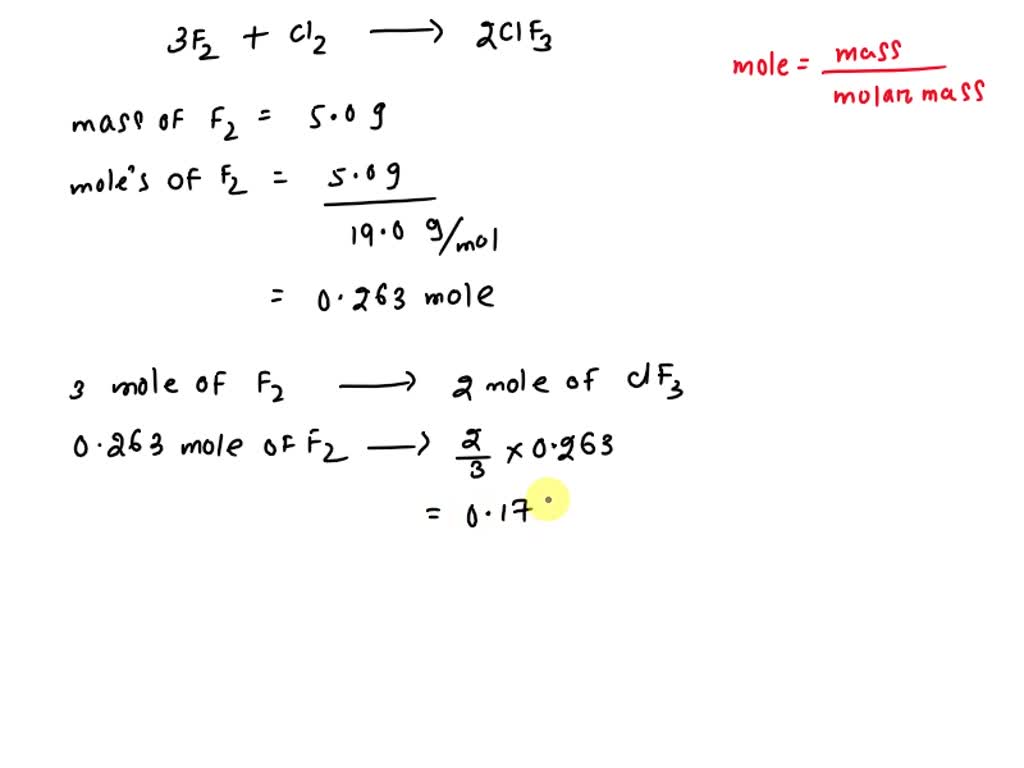 3F₂ + Cl₂ ⟶ 2ClF₃
mole = mass / molar mass
mass of F₂ = 5.0 g
mole's of F₂ = 5.0 g / 19.0 g/mol
= 0.263 mole
3 mole of F₂ ⟶ 2 mole of ClF₃
0.263 mole of F₂ ⟶ 2/3 × 0.263
= 0.17